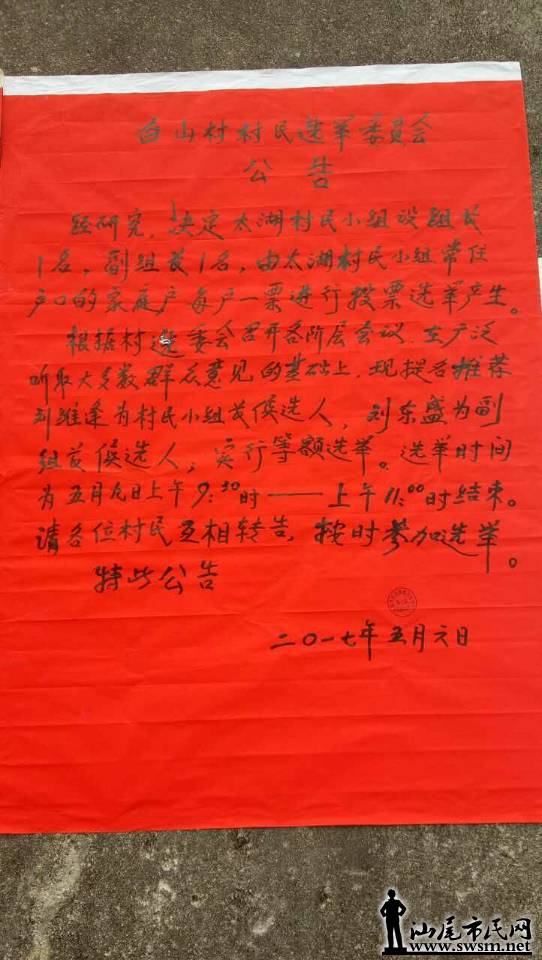 白山村村民选举委员会
公告
经研究，决定太湖村民小组设组长
1名，副组长1名，由太湖村民小组常住
户口的家庭户每户一票进行投票选举产生。
根据村选委会召开各阶层会议，在广泛
听取大多数群众意见的基础上，现提名推荐
刘维逢为村民小组长候选人，刘东盛为副
组长候选人，实行等额选举。选举时间
为五月九日上午9:30时——上午11:00时结束。
请各位村民互相转告，按时参加选举。
特此公告
二〇一七年五月六日
汕尾市民网
www.swsm.net